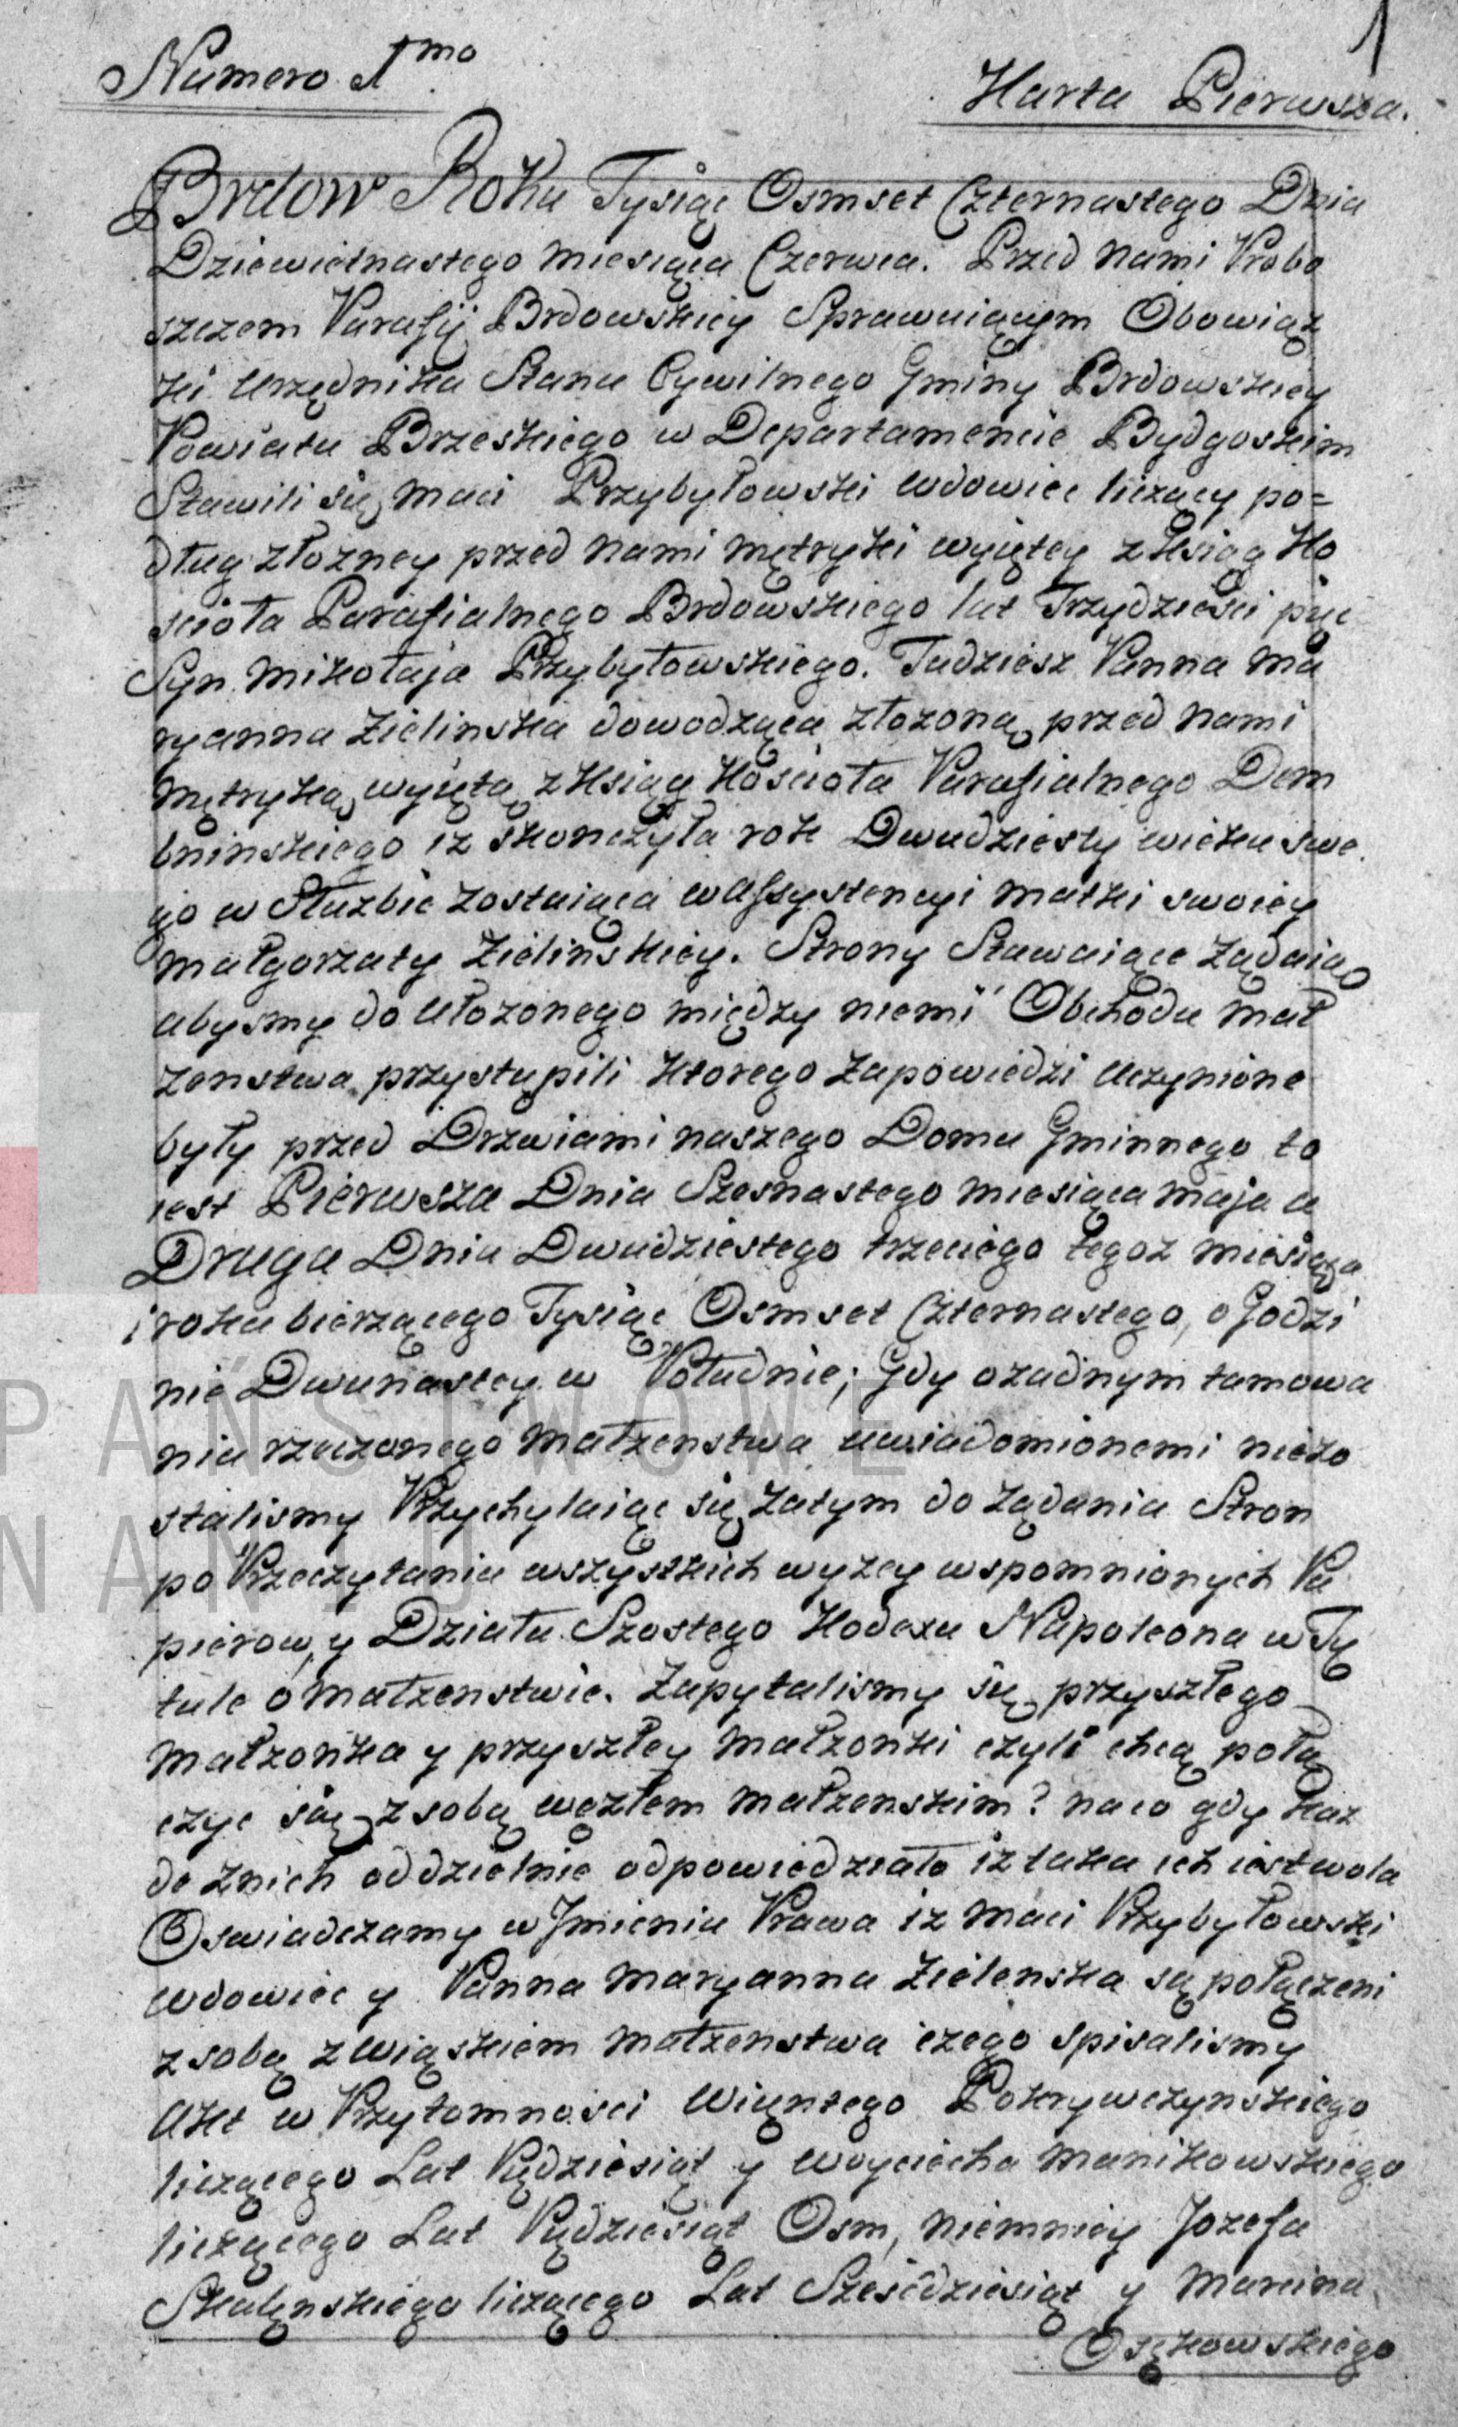 1
Numero 1mo
Karta Pierwsza.
Brdow Roku Tysiąc Osmset Czternastego Dnia
Dziewietnastego Miesiąca Czerwca. Przed Nami Probo
szczem Parafij Brdowskiey Sprawuiącym Obowiąz
ki Urzędnika Stanu Cywilnego Gminy Brdowskiey
Powiatu Brzeskiego w Departamencie Bydgoskim
Stawili się Maci Przybyłowski Wdowiec liczący po=
dług złozney przed Nami Mętryki wyiętey z Ksiąg Ko
scioła Parafialnego Brdowskiego lat Trzydziesci pięc
Syn Mikołaja Przybyłowskiego. Tudziesz Panna Ma
ryanna Zielinska dowodząca złozoną przed Nami
Mętryką wyiętą z Ksiąg Koscioła Parafialnego Dem
bninskiego iz skonczyła rok Dwudziesty wieku swe
go w Słuzbie zostaiąca w Assystencyi Matki swoiey
Małgorzaty Zielinskiey. Strony Stawaiące ządaią
abysmy do Ułozonego między niemi Obchodu Mał
zenstwa przystąpili ktorego zapowiedzi Uczynione
były przed Drzwiami naszego Domu Gminnego to
iest Pierwsza Dnia Szesnastego Miesiąca Maja a
Druga Dnia Dwudziestego trzeciego tegoz Miesiąca
i roku bierzącego Tysiąc Osmset Czternastego, o Godzi
nie Dwunastey w Południe; Gdy ozadnym tamowa
niu rzeczonego Małzenstwa uwiadomionemi niezo
stalismy Przychylaiąc się zatym do ządania Stron
po Przeczytaniu wszystkich wyzey wspomnionych Pa
pierow, y Działu Szostego Kodexu Napoleona w Ty
tule o Małzenstwie. Zapytalismy się przyszłego
Małzonka y przyszłey Małzonki czyli chcą połą
czyc się z sobą węzłem Małzenskim? na co gdy Kaz
de znich oddzielnie odpowiedziało iz taka ich iest wola
Oswiadczamy w Jmieniu Prawa iz Maci Przybyłowski
Wdowiec y Panna Maryanna Zielenska są połączeni
z sobą związkiem Małzenstwa czego spisalismy
Akt w Przytomnosci Wincętego Pokrywczynskiego
liczącego Lat Pędziesiąt y Woyciecha Manikowskiego
liczącego Lat Pędziesiąt Osm, niemniey Jozefa
Skalęnskiego liczącego Lat Szesćdziesiąt y Marcina
Osękowskiego
PAŃSTWOWE
NANIU